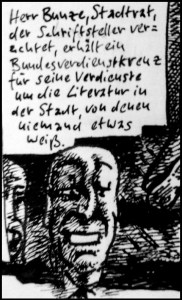 Herr Bunze, Stadtrat,
der Schriftsteller ver=
achtet, erhält ein
Bundesverdienstkreuz
für seine Verdienste
um die Literatur in
der Stadt, von denen
niemand etwas
weiß.